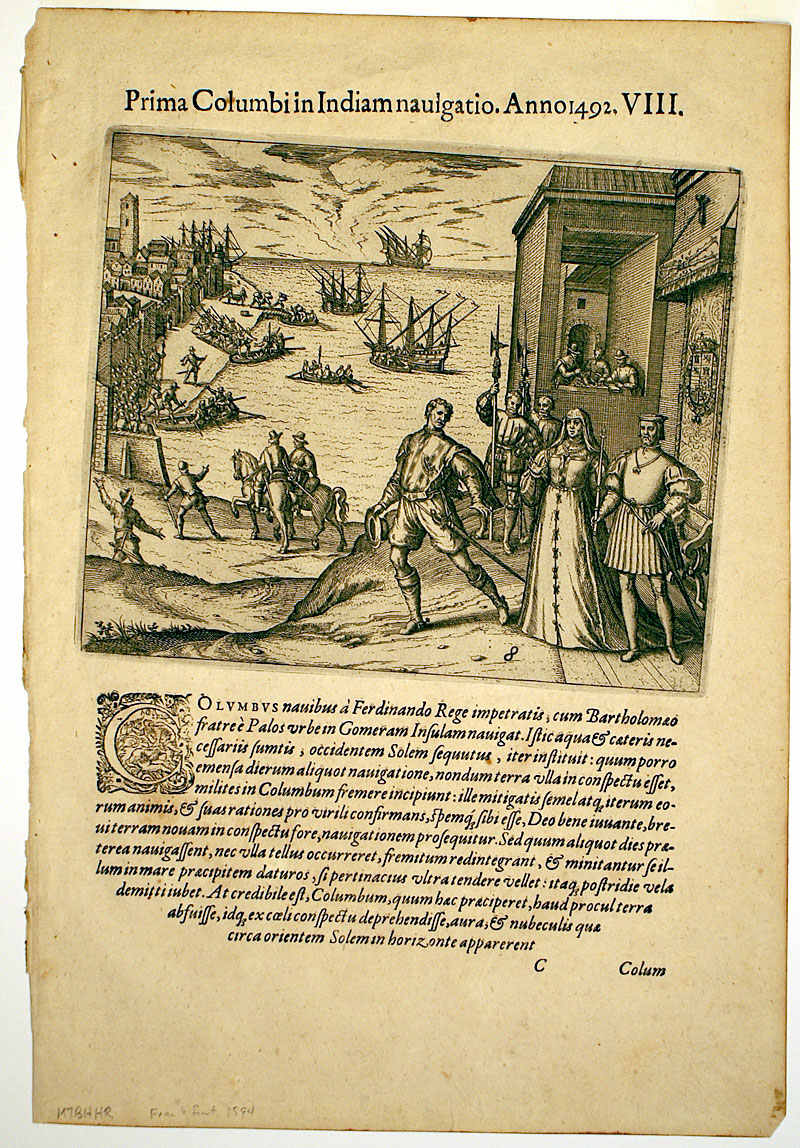 Prima Columbi in Indiam nauigatio. Anno 1492. VIII.
8
COLVMBVS nauibus à Ferdinando Rege impetratis, cum Bartholomæo
fratre è Palos vrbe in Gomeram Insulam nauigat. Istic aqua & cæteris ne-
cessariis sumtis, occidentem Solem sequutus, iter instituit: quum porro
emensa dierum aliquot nauigatione, nondum terra vlla in conspectu esset,
milites in Columbum fremere incipiunt: ille mitigatis semel atq, iterum eo-
rum animis, & suas rationes pro virili confirmans, spemq́, sibi esse, Deo bene iuuante, bre-
ui terram nouam in conspectu fore, nauigationem prosequitur. Sed quum aliquot dies præ-
terea nauigassent, nec vlla tellus occurreret, fremitum redintegrant, & minitantur se il-
lum in mare præcipitem daturos, si pertinacius vltra tendere vellet: itaq, postridie vela
demitti iubet. At credibile est, Columbum, quum hac præciperet, haud procul terra
abfuisse, idq, ex cœli conspectu deprehendisse, aura, & nubeculis quæ
circa orientem Solem in horizonte apparerent
C Colum
M7BHHR Frankfurt 1594